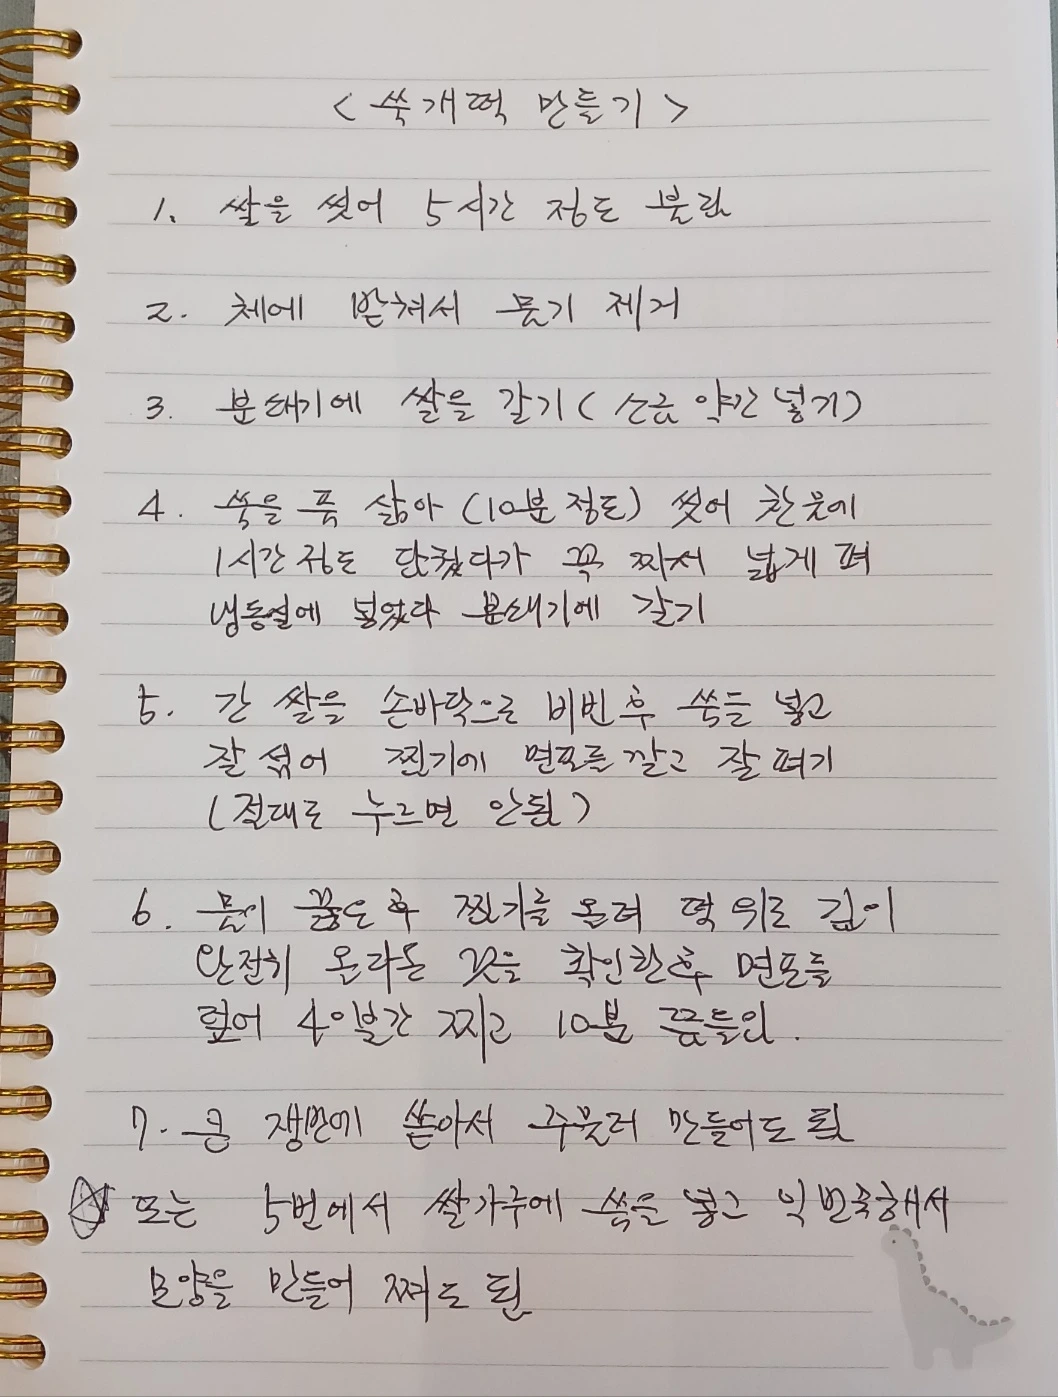 < 쑥개떡 만들기 >
1. 쌀을 씻어 5시간 정도 불림
2. 체에 받쳐서 물기 제거
3. 분쇄기에 쌀을 갈기 (소금 약간 넣기)
4. 쑥을 푹 삶아 (10분 정도) 씻어 찬물에
1시간 정도 담궜다가 꼭 짜서 넓게 펴
냉동실에 넣었다 분쇄기에 갈기
5. 간 쌀을 손바닥으로 비빈 후 쑥을 넣고
잘 섞어 찜기에 면포를 깔고 잘 펴기
(절대로 누르면 안됨)
6. 물이 끓은 후 찜기를 올려 떡 위로 김이
완전히 올라온 것을 확인한 후 면포를
덮어 40분간 찌고 10분 뜸들임.
7. 큰 쟁반에 쏟아서 주물러 만들어도 됨
또는 5번에서 쌀가루에 쑥을 넣고 익반죽해서
모양을 만들어 쪄도 됨